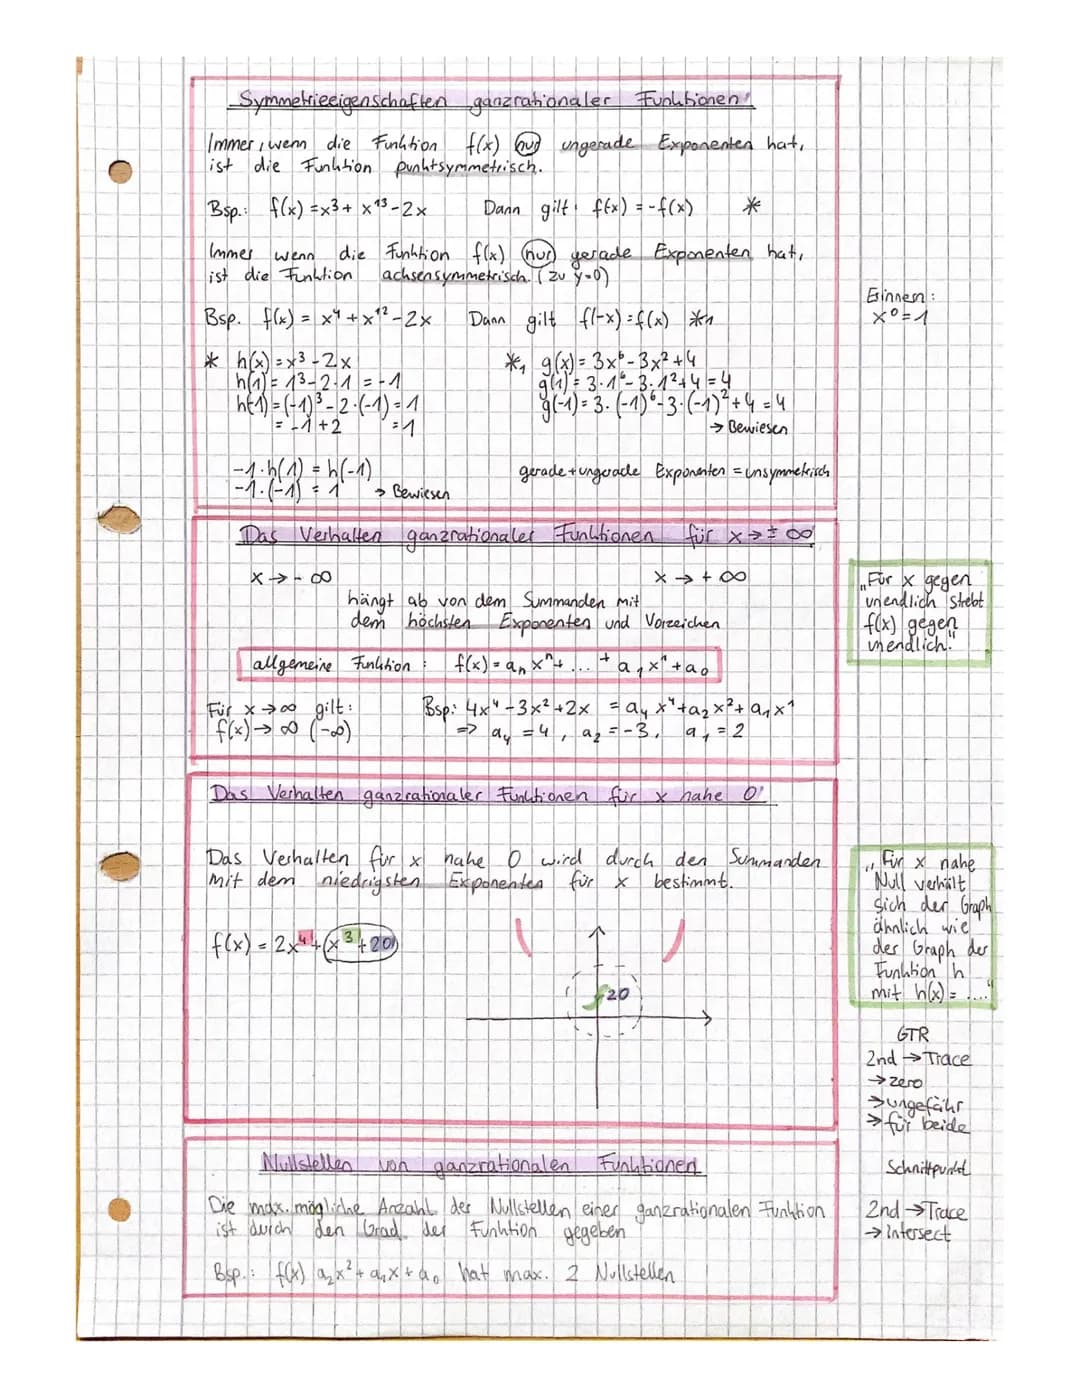 Symmetrieeigenschaften ganzrationaler Funktionen
Immer, wenn die Funktion f(x) nur ungerade Exponenten hat,
ist die Funktion punktsymmetrisch.
Bsp.: f(x) = x³ + x¹³ - 2x Dann gilt: f(x) = -f(x) *
Immer wenn die Funktion f(x) nur gerade Exponenten hat,
ist die Funktion achsensymmetrisch. (zu y=0)
Bsp. f(x) = x⁴ + x¹² - 2x Dann gilt f(-x) = f(x) *1
Erinnern:
x⁰ = 1
* h(x) = x³ - 2x
h(1) = 1³ - 2·1 = -1
h(-1) = (-1)³ - 2·(-1) = 1
= -1 + 2 = 1
-1·h(1) = h(-1)
-1·(-1) = 1 → Bewiesen
*1 g(x) = 3x⁶ - 3x² + 4
g(1) = 3·1⁶ - 3·1² + 4 = 4
g(-1) = 3·(-1)⁶ - 3·(-1)² + 4 = 4
→ Bewiesen
gerade + ungerade Exponenten = unsymmetrisch
Das Verhalten ganzrationaler Funktionen für x → ± ∞
x → - ∞ x → + ∞
hängt ab von dem Summanden mit
dem höchsten Exponenten und Vorzeichen
allgemeine Funktion: f(x) = aₙxⁿ + ... + a₁x¹ + a₀
Für x → ∞ gilt:
f(x) → ∞ (-∞)
Bsp: 4x⁴ - 3x² + 2x = a₄x⁴ + a₂x² + a₁x¹
=> a₄ = 4, a₂ = -3, a₁ = 2
„Für x gegen
unendlich strebt
f(x) gegen
unendlich."
Das Verhalten ganzrationaler Funktionen für x nahe 0
Das Verhalten für x nahe 0 wird durch den Summanden
mit dem niedrigsten Exponenten für x bestimmt.
f(x) = 2x⁴ + (x³ + 20)
20
„Für x nahe
Null verhält
sich der Graph
ähnlich wie
der Graph der
Funktion h
mit h(x) = ...."
GTR
2nd → Trace
→ zero
→ ungefähr
→ für beide
Schnittpunkt
2nd → Trace
→ intersect
Nullstellen von ganzrationalen Funktionen
Die max. mögliche Anzahl der Nullstellen einer ganzrationalen Funktion
ist durch den Grad der Funktion gegeben
Bsp.: f(x) a₂x² + a₁x + a₀ hat max. 2 Nullstellen